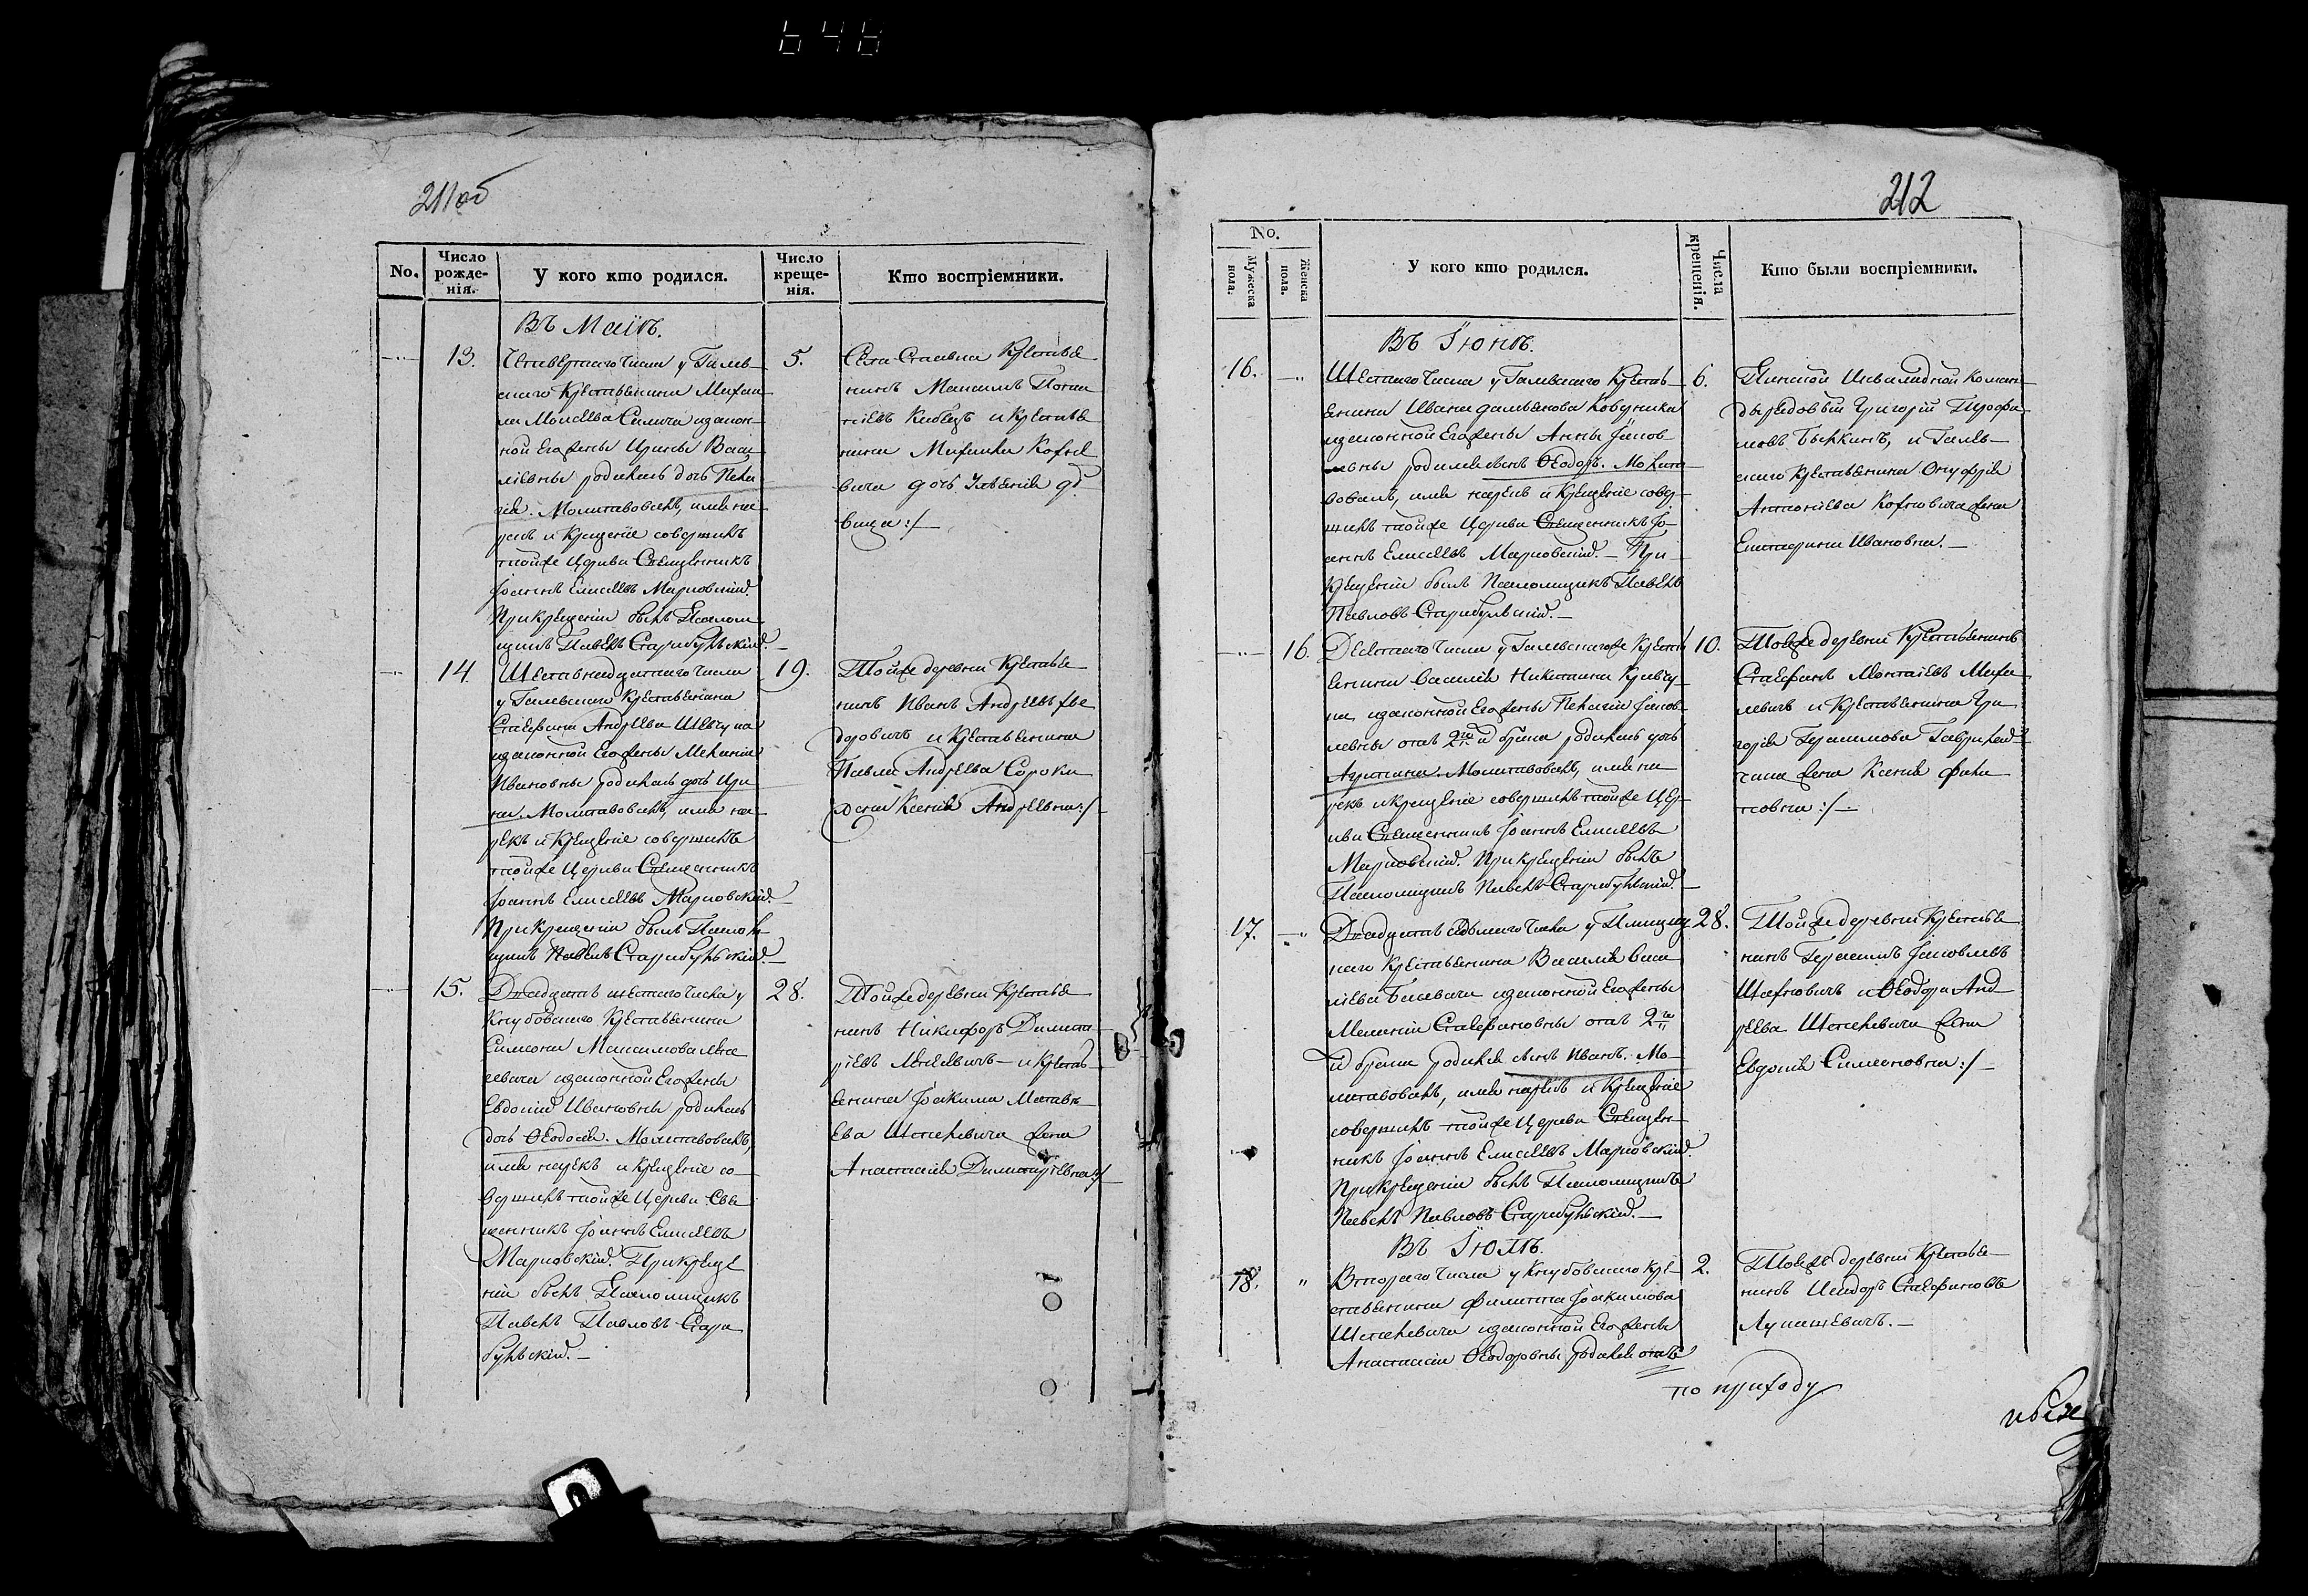 648
211об
No.
Число рожде-нія.
У кого кто родился.
Число креще-нія.
Кто воспріемники.
Въ Маіѣ.
13. Четвертаго числа у Галев-
скаго Крестьянина Михаи-
ла Моисеева Силича и закон-
ной Его жены Ирины Васи-
ліевны родилась дочь Пела
гія. Молитвовалъ, имя на-
рекъ и крещеніе совершилъ
тойже Церкви Священникъ
Іоаннъ Елисеевъ Марковскій.
При крещеніи былъ Псалом-
щикъ Павелъ Старибульскій.
5. Села Крестья
нинъ Максимъ
и Крестья
нина
вича дочь дѣ
вица :/
14. Шестьнадцатаго числа
у Галевскаго Крестьянина
Стефана Андреева Шевчука
и законной Его жены Меланіи
Ивановны родилась дочь Ири
на. Молитвовалъ, имя на-
рекъ и Крещеніе совершилъ
тойже Церкви Священникъ
Іоаннъ Елисеевъ Марковскій.
При крещеніи былъ Псалом-
щикъ Павелъ Старибульскій.
19. Тойже деревни Крестья
нинъ Иванъ Андреевъ Фе
доровичъ и Крестьянина
Павла Андреева Сороки
жена Ксенія Андреевна :/
15. Двадцать шестаго числа у
Кнубовскаго Крестьянина
Симеона Максимова
севича и законной Его жены
Евдокіи Ивановны родилась
дочь Ѳеодосія. Молитвовалъ,
имя нарекъ и крещеніе со-
вершилъ тойже Церкви Свя
щенникъ Іоаннъ Елисеевъ
Марковскій. При креще
ніи былъ Псаломщикъ
Павелъ Павловъ Стари
бульскій.
28. Тойже деревни Крестья
нинъ Никифоръ Димит-
ріевъ и Кресть-
янина Іоакима Матвѣ-
ева Шпилевича жена
Анастасія Димитріевна :/
212
No.
Мужеска пола.
Женска пола.
У кого кто родился.
Числа крещенія.
Кто были воспріемники.
Въ Іюнѣ.
16. Шестаго числа у Галевскаго Кресть-
янина Ивана Коверника
и законной Его жены Анны Іаков-
левны родился сынъ Ѳеодоръ. Молит-
вовалъ, имя нарекъ и Крещеніе совер-
шилъ тойже Церкви Священникъ Іо-
аннъ Елисеевъ Марковскій. При
Крещеніи былъ Псаломщикъ Павелъ
Павловъ Старибульскій.
6. Пинской Инвалидной Коман-
ды рядовый Григорій Трофи-
мовъ Бычкинъ, и Галев-
скаго Крестьянина Онуфрія
Антоніева жена
Екатерина Ивановна.
16. Десятаго числа у Галевскаго же Кресть
янина Василія Никитина Кривчу-
ка и законной Его жены Пелагіи Іаков
левны отъ 2го и брака родилась дочь
Агрипина. Молитвовалъ, имя на
рекъ и крещеніе совершилъ тойже Цер-
кви Священникъ Іоаннъ Елисеевъ
Марковскій. При крещеніи былъ
Псаломщикъ Павелъ Старибульскій.
10. Тойже деревни Крестьянинъ
Стефанъ Миха
левичъ и Крестьянина Гри
горія Герасимова
жена Ксенія Фили
повна :/
17. Двадцать седьмаго числа у
скаго Крестьянина Василія Васи
ліева и законной Его жены
Меланіи Стефановны отъ 2го
и брака родился сынъ Иванъ. Мо-
литвовалъ, имя нарекъ и Крещеніе
совершилъ тойже Церкви Священ-
никъ Іоаннъ Елисеевъ Марковскій.
При Крещеніи былъ Псаломщикъ
Павелъ Павловъ Старибульскій.
28. Тойже деревни Крестья
нинъ Герасимъ Іаковлевъ
и Ѳеодора Анд
реева Шпилевича жена
Евдокія Симеоновна :/
Въ Іюлѣ.
18. Втораго числа у Кнубовскаго Кре-
стьянина Филиппа Іоакимова
Шпилевича и законной Его жены
Анастасіи Ѳеодоровны родился сынъ
2. Тойже деревни Крестья-
нинъ Исидоръ Стефановъ
Лукашевичъ.
по приходу